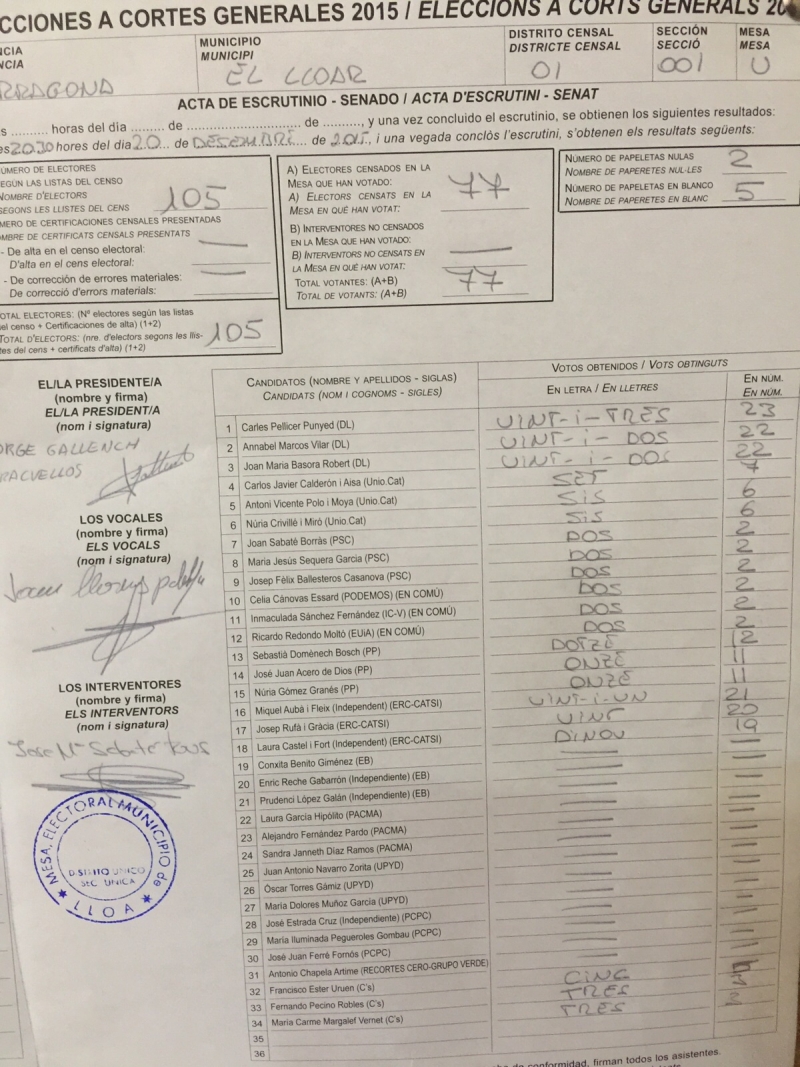 CCIONES A CORTES GENERALES 2015 / ELECCIONS A CORTS GENERALS 20
NCIA
NCIA
RRAGONA
MUNICIPIO
MUNICIPI
EL LLOAR
DISTRITO CENSAL
DISTRICTE CENSAL
01
SECCIÓN
SECCIÓ
001
MESA
MESA
U
ACTA DE ESCRUTINIO - SENADO / ACTA D'ESCRUTINI - SENAT
s ......... horas del día ......... de ............................ de .........., y una vez concluido el escrutinio, se obtienen los siguientes resultados:
es 2030 hores del dia 20 ... de DESEMBRE ... de 2015, i una vegada conclòs l'escrutini, s'obtenen els resultats següents:
NÚMERO DE ELECTORES
SEGÚN LAS LISTAS DEL CENSO
NOMBRE D'ELECTORS
SEGONS LES LLISTES DEL CENS
105
MERO DE CERTIFICACIONES CENSALES PRESENTADAS
OMBRE DE CERTIFICATS CENSALS PRESENTATS
- De alta en el censo electoral:
D'alta en el cens electoral:
- De corrección de errores materiales:
De correcció d'errors materials:
TOTAL ELECTORES: (Nº electores según las listas
el censo + Certificaciones de alta) (1+2)
TOTAL D'ELECTORS: (nre. d'electors segons les llis-
tes del cens + certificats d'alta) (1+2)
105
A) ELECTORES CENSADOS EN LA
MESA QUE HAN VOTADO:
A) ELECTORS CENSATS EN LA
MESA EN QUÈ HAN VOTAT:
77
B) INTERVENTORES NO CENSADOS
EN LA MESA QUE HAN VOTADO:
B) INTERVENTORS NO CENSATS EN
LA MESA EN QUÈ HAN VOTAT:
TOTAL VOTANTES: (A+B)
TOTAL DE VOTANTS: (A+B)
77
NÚMERO DE PAPELETAS NULAS
NOMBRE DE PAPERETES NUL·LES
2
NÚMERO DE PAPELETAS EN BLANCO
NOMBRE DE PAPERETES EN BLANC
5
EL/LA PRESIDENTE/A
(nombre y firma)
EL/LA PRESIDENT/A
(nom i signatura)
ORGE GALLENCH
RACUELLOS
LOS VOCALES
(nombre y firma)
ELS VOCALS
(nom i signatura)
LOS INTERVENTORES
(nombre y firma)
ELS INTERVENTORS
(nom i signatura)
MESA ELECTORAL MUNICIPIO de
DISTRITO UNICO
SEC. UNICA
LLOA
CANDIDATOS (NOMBRE Y APELLIDOS - SIGLAS)
CANDIDATS (NOM I COGNOMS - SIGLES)
VOTOS OBTENIDOS / VOTS OBTINGUTS
EN LETRA / EN LLETRES
EN NÚM.
EN NÚM.
1 Carles Pellicer Punyed (DL) VINT-I-TRES 23
2 Annabel Marcos Vilar (DL) VINT-I-DOS 22
3 Joan Maria Basora Robert (DL) VINT-I-DOS 22
4 Carlos Javier Calderón i Aisa (Unio.Cat) SET 7
5 Antoni Vicente Polo i Moya (Unio.Cat) SIS 6
6 Núria Crivillé i Miró (Unio.Cat) SIS 6
7 Joan Sabaté Borràs (PSC) DOS 2
8 Maria Jesús Sequera Garcia (PSC) DOS 2
9 Josep Félix Ballesteros Casanova (PSC) DOS 2
10 Celia Cánovas Essard (PODEMOS) (EN COMÚ) DOS 2
11 Inmaculada Sánchez Fernández (IC-V) (EN COMÚ) DOS 2
12 Ricardo Redondo Moltó (EUiA) (EN COMÚ) DOS 2
13 Sebastià Domènech Bosch (PP) DOTZE 12
14 José Juan Acero de Dios (PP) ONZE 11
15 Núria Gómez Granés (PP) ONZE 11
16 Miquel Aubà i Fleix (Independent) (ERC-CATSI) VINT-I-UN 21
17 Josep Rufà i Gràcia (ERC-CATSI) VINT 20
18 Laura Castel i Fort (Independent) (ERC-CATSI) DINOU 19
19 Conxita Benito Giménez (EB)
20 Enric Reche Gabarrón (Independiente) (EB)
21 Prudenci López Galán (Independiente) (EB)
22 Laura Garcia Hipólito (PACMA)
23 Alejandro Fernández Pardo (PACMA)
24 Sandra Janneth Díaz Ramos (PACMA)
25 Juan Antonio Navarro Zorita (UPYD)
26 Óscar Torres Gámiz (UPYD)
27 María Dolores Muñoz García (UPYD)
28 José Estrada Cruz (Independiente) (PCPC)
29 Maria Iluminada Pegueroles Gombau (PCPC)
30 José Juan Ferré Fornós (PCPC)
31 Antonio Chapela Artime (RECORTES CERO-GRUPO VERDE)
32 Francisco Ester Uruen (C's) CINC
33 Fernando Pecino Robles (C's) TRES
34 Maria Carme Margalef Vernet (C's) TRES
35
36
de conformidad, firman todos los asistentes.